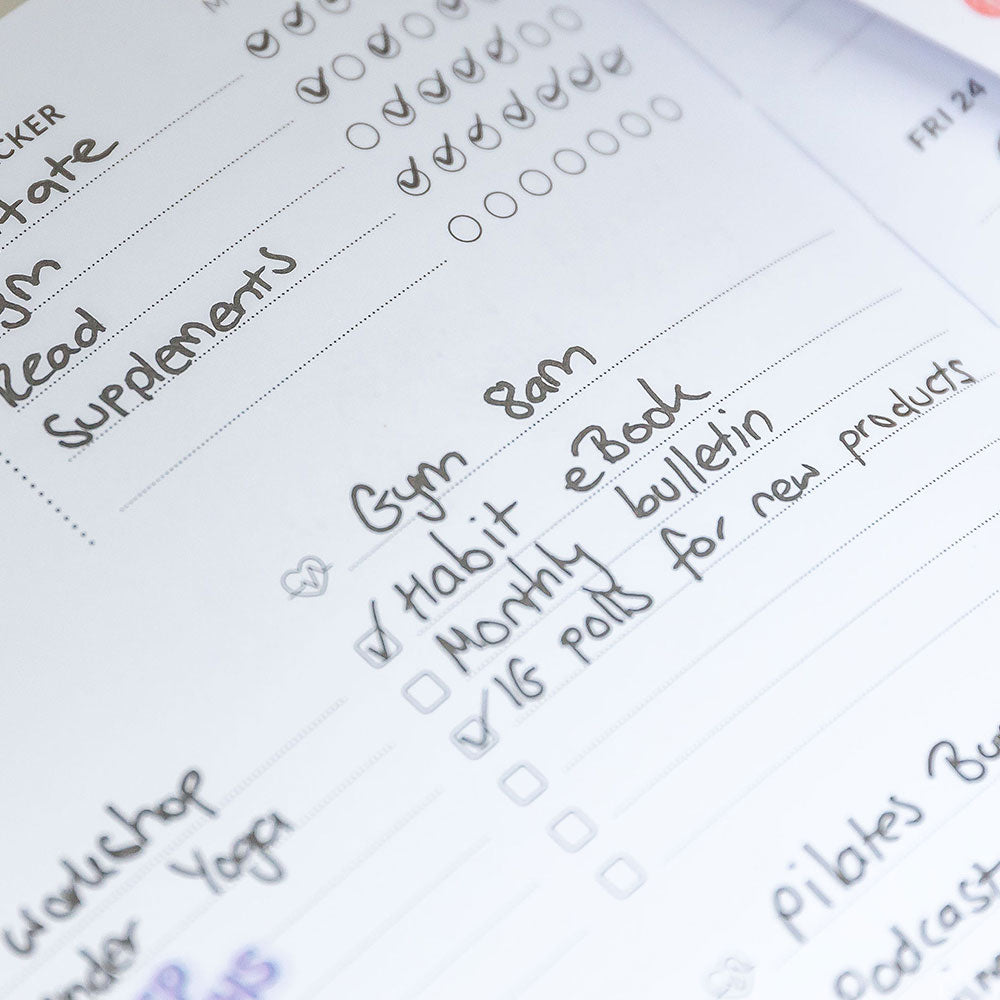 M
CKER
tate
gym
Read
Supplements
FRI 24
Gym 8am
Habit eBook
Monthly bulletin
IG polls for new products
Workshop
Yoga
Pilates
Podcast